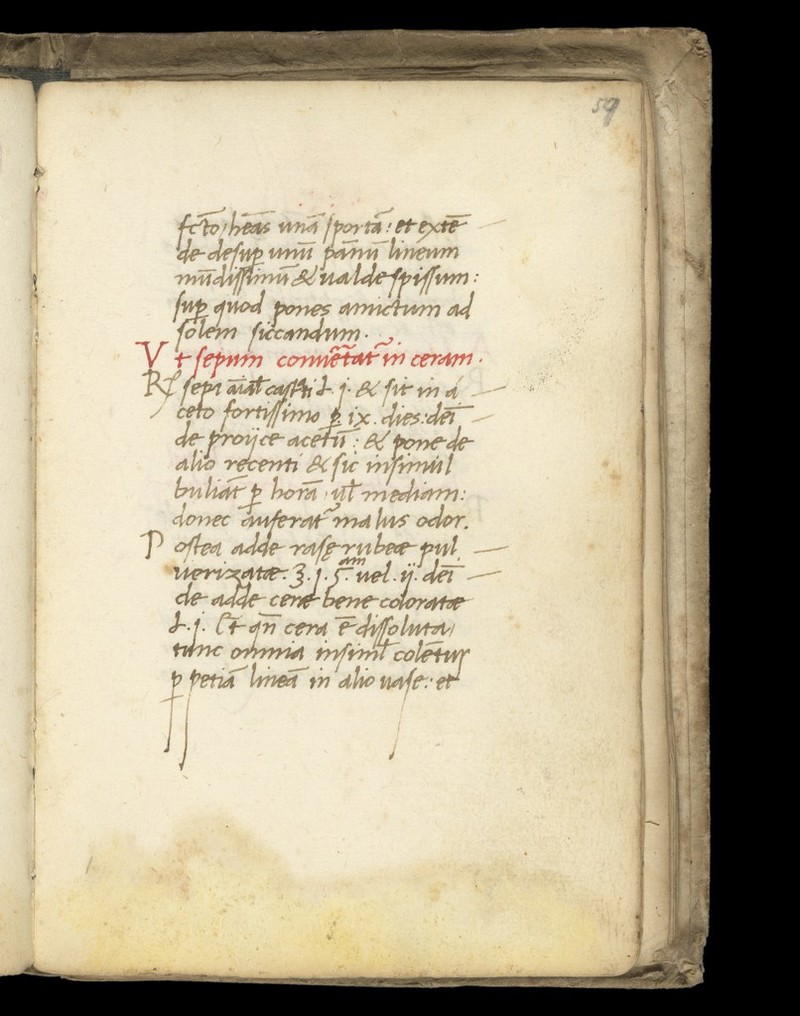 59
fcto, heās unā sportā: et extē
de desuꝑ unū pānū lineum
mūdissimū & ualde spissum:
suꝑ quod pones amictum ad
solem siccandum.
Vt sepum conuētat in ceram.
℞ sepi castri ł. i. & sit in a
ceto fortissimo ꝑ ix. dies: deī
de proijce acetū: & pone de
alio recenti & sic insimul
buliāt ꝑ horā, uł mediam:
donec auferat malus odor.
Postea adde rasę rubeæ pul
uerizatæ. ʒ. i. uel. ij. deī
de adde ceræ bene coloratæ
ł. i. Et qn̄ cera ē dissoluta,
tunc omnia insimł colētur
ꝑ petiā lineā in alio uase: et